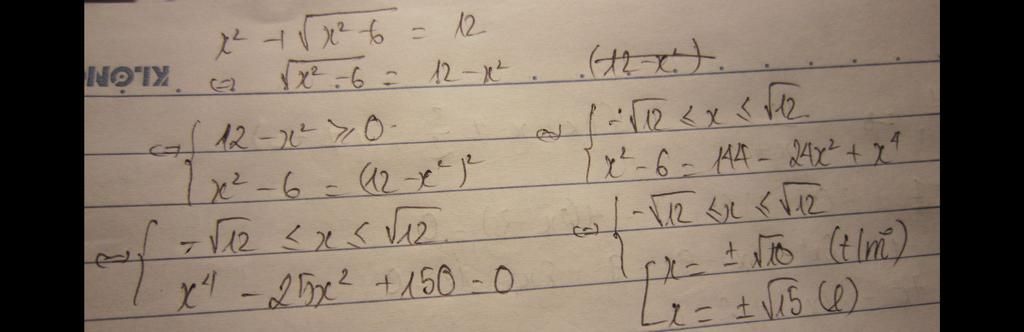 x² + √(x² - 6) = 12
⇔ √(x² - 6) = 12 - x² (12 - x²)
KLONG
⇔ { 12 - x² ≥ 0
x² - 6 = (12 - x²)²
⇔ { -√12 ≤ x ≤ √12
x² - 6 = 144 - 24x² + x⁴
⇔ { -√12 ≤ x ≤ √12
x⁴ - 25x² + 150 = 0
⇔ { -√12 ≤ x ≤ √12
[ x = ± √10 (t/m)
x = ± √15 (l)